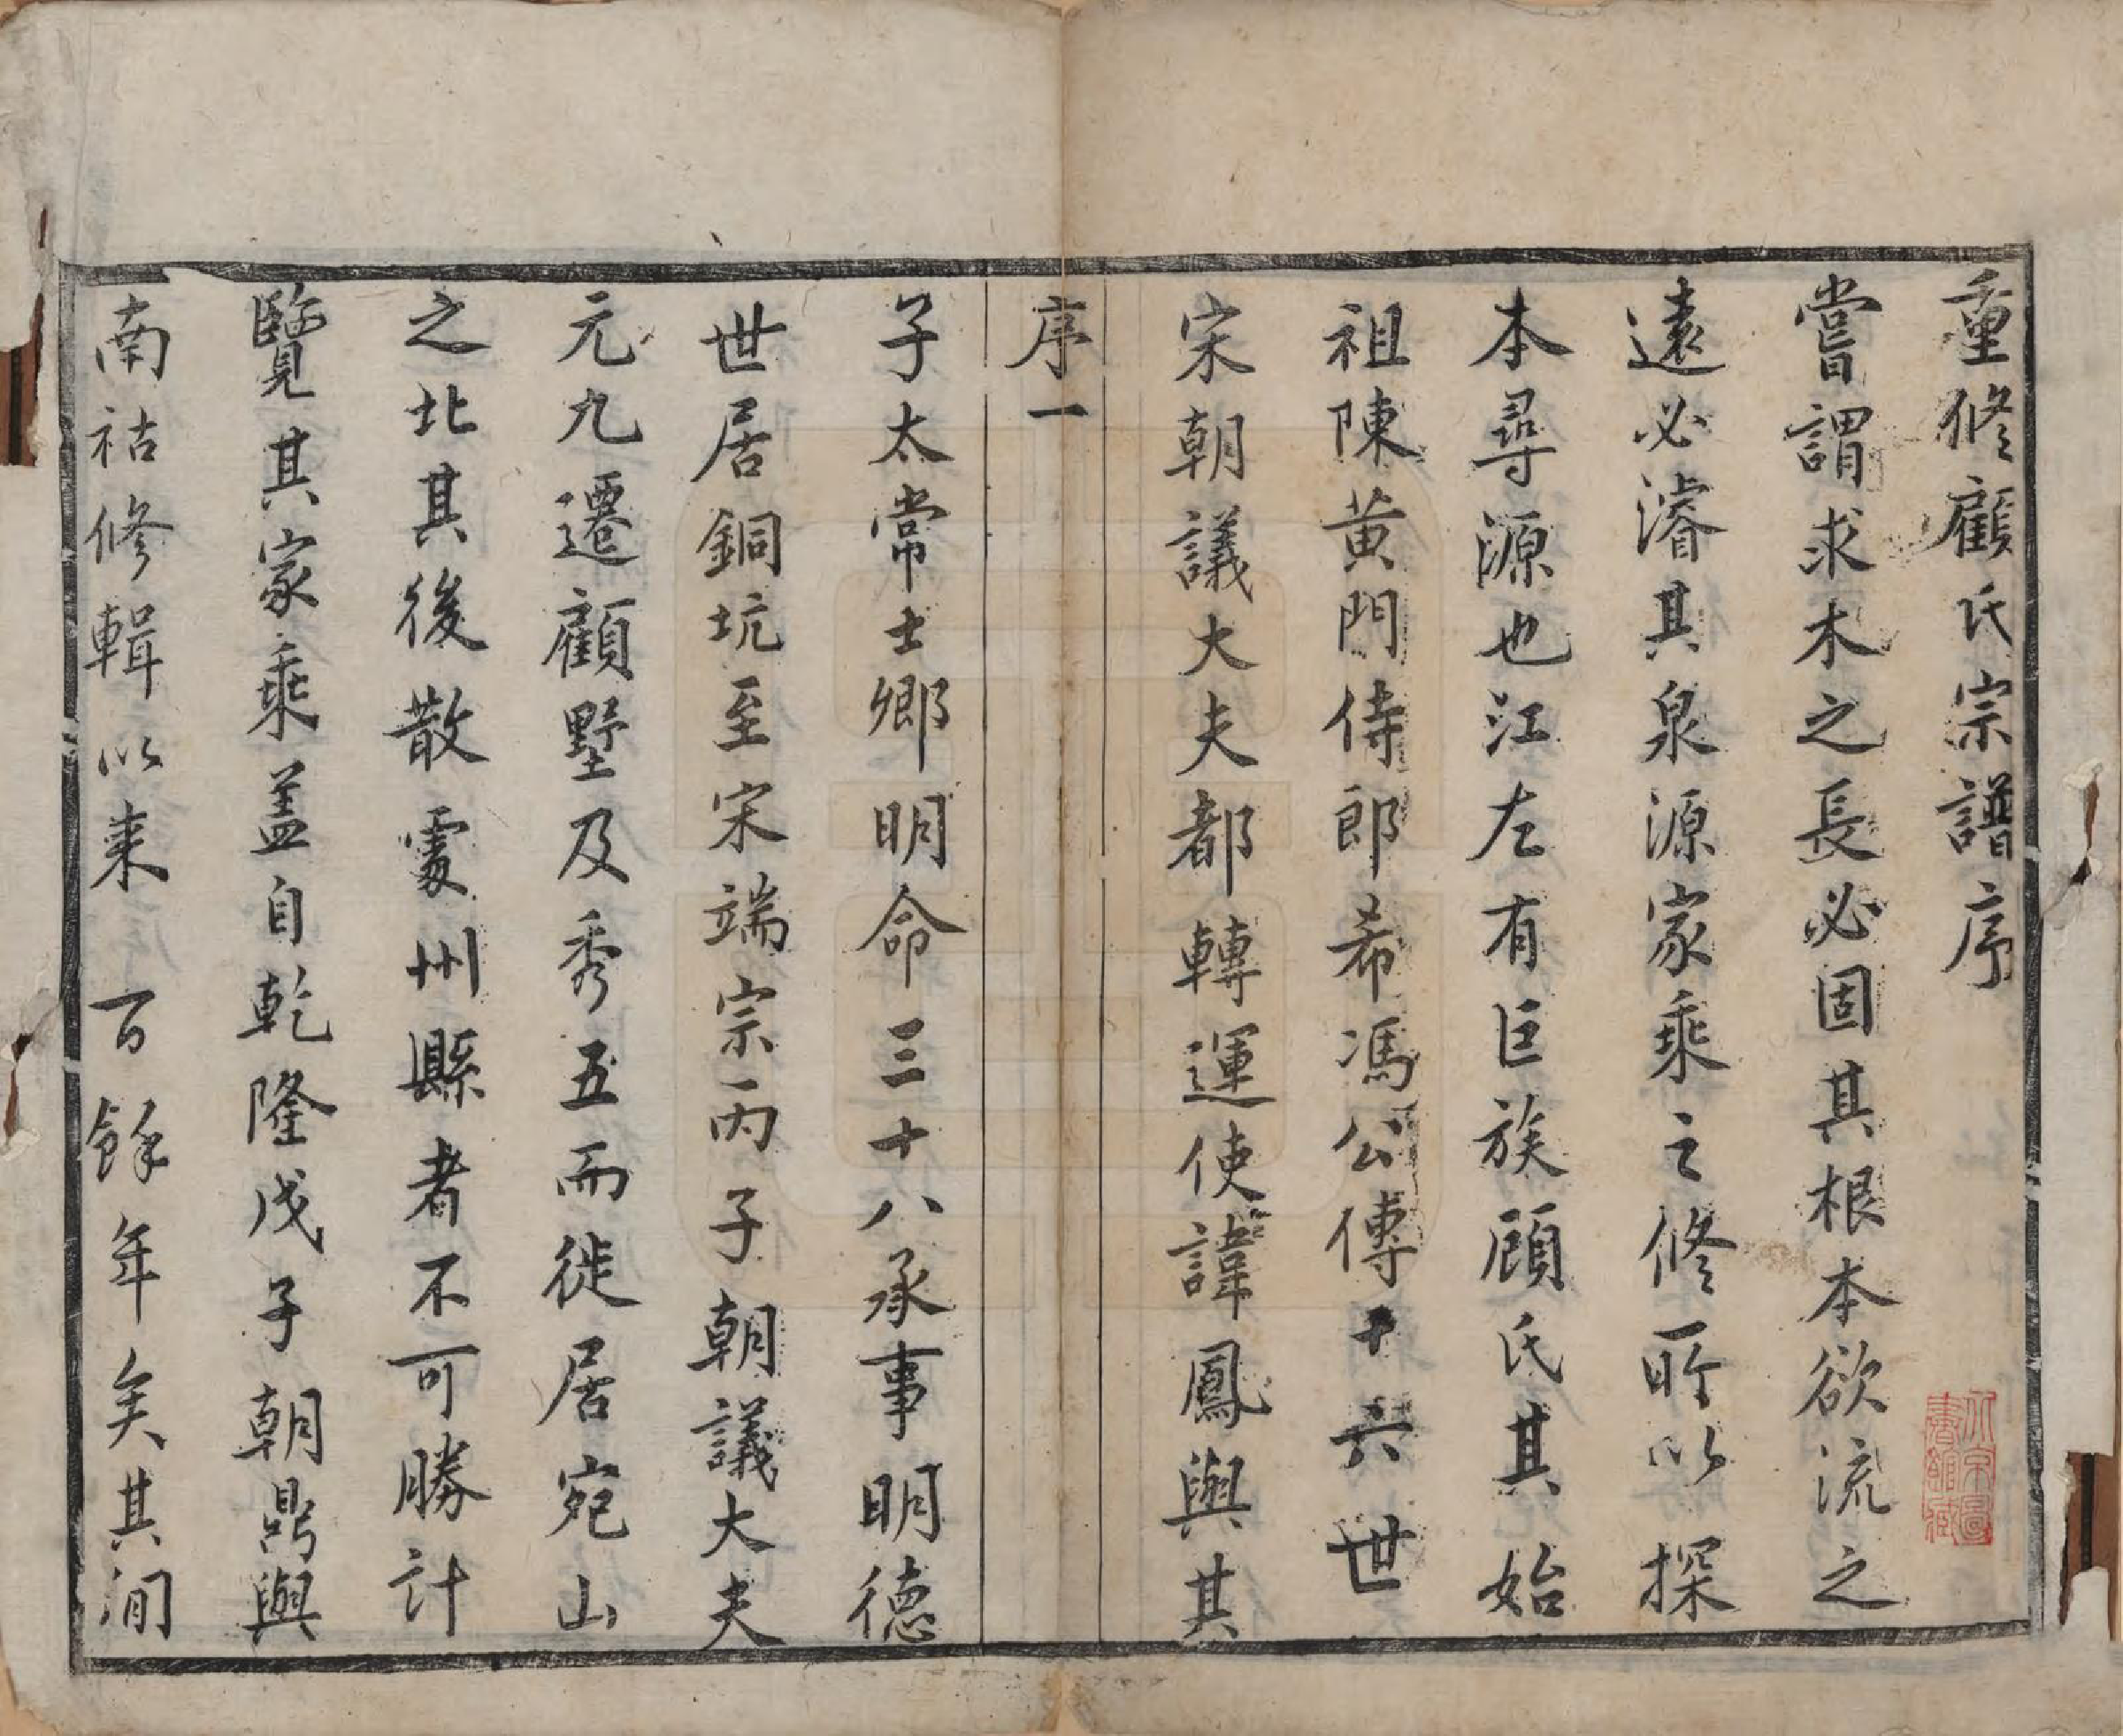 重修顧氏宗譜序
嘗謂求木之長必固其根本欲流之
遠必濬其泉源家乘之修所以探
本尋源也江左有巨族顧氏其始
祖陳黄門侍郎希馮公傳十六世
宋朝議大夫都轉運使諱鳳與其
序一
子太常士卿明命三十八承事明德
世居銅坑至宋端宗丙子朝議大夫
元九遷顧墅及秀五而徙居宛山
之北其後散處州縣者不可勝計
覽其家乘盖自乾隆戊子朝鼎與
南祜修輯以来百餘年矣其间